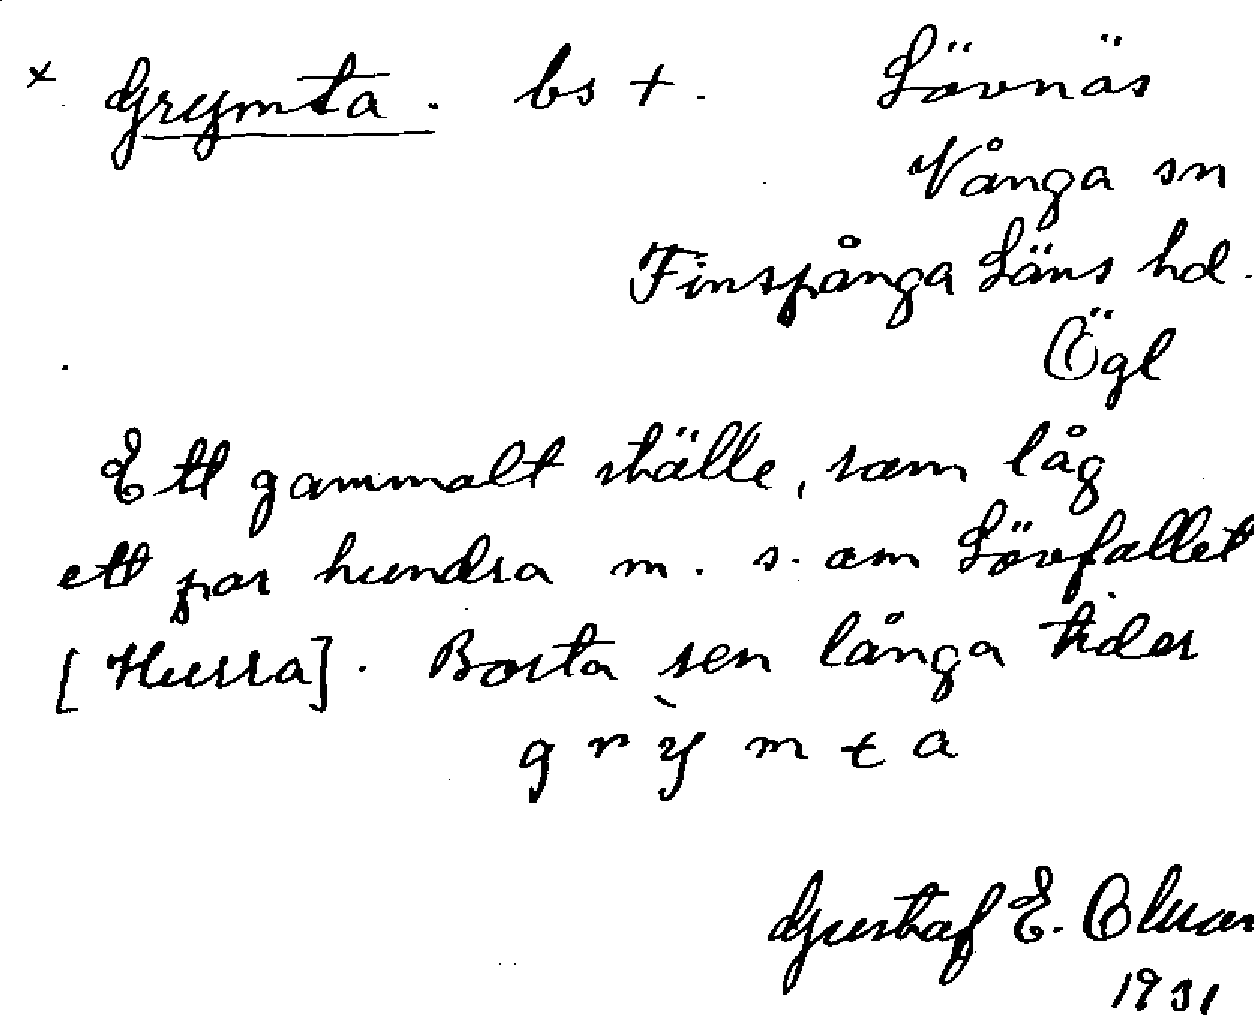 × Grymta. bs +. Lövnäs
Vånga sn
Finspånga Läns hd.
Ögl
Ett gammalt ställe, som låg
ett par hundra m. s. om Lövfallet
[Hurra]. Borta sen långa tider
grỳmta
Gustaf E.
1931